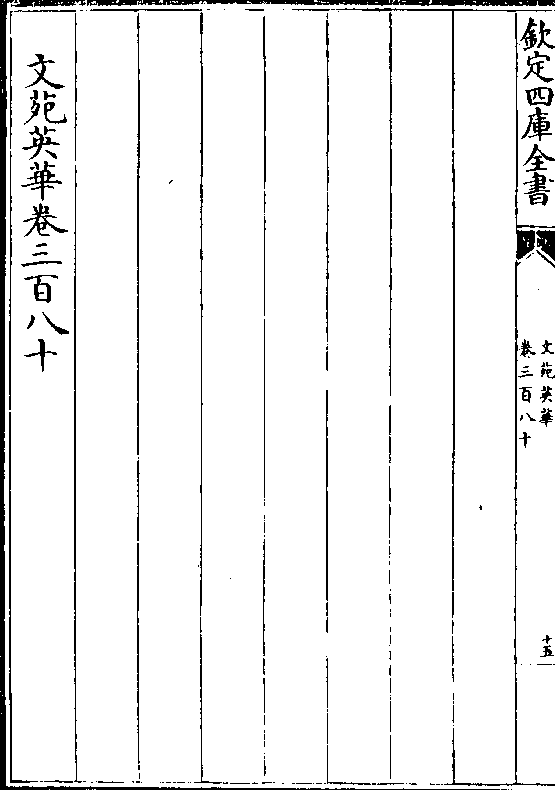 欽定四庫全書
文苑英華
卷三百八十
十五
文苑英華卷三百八十